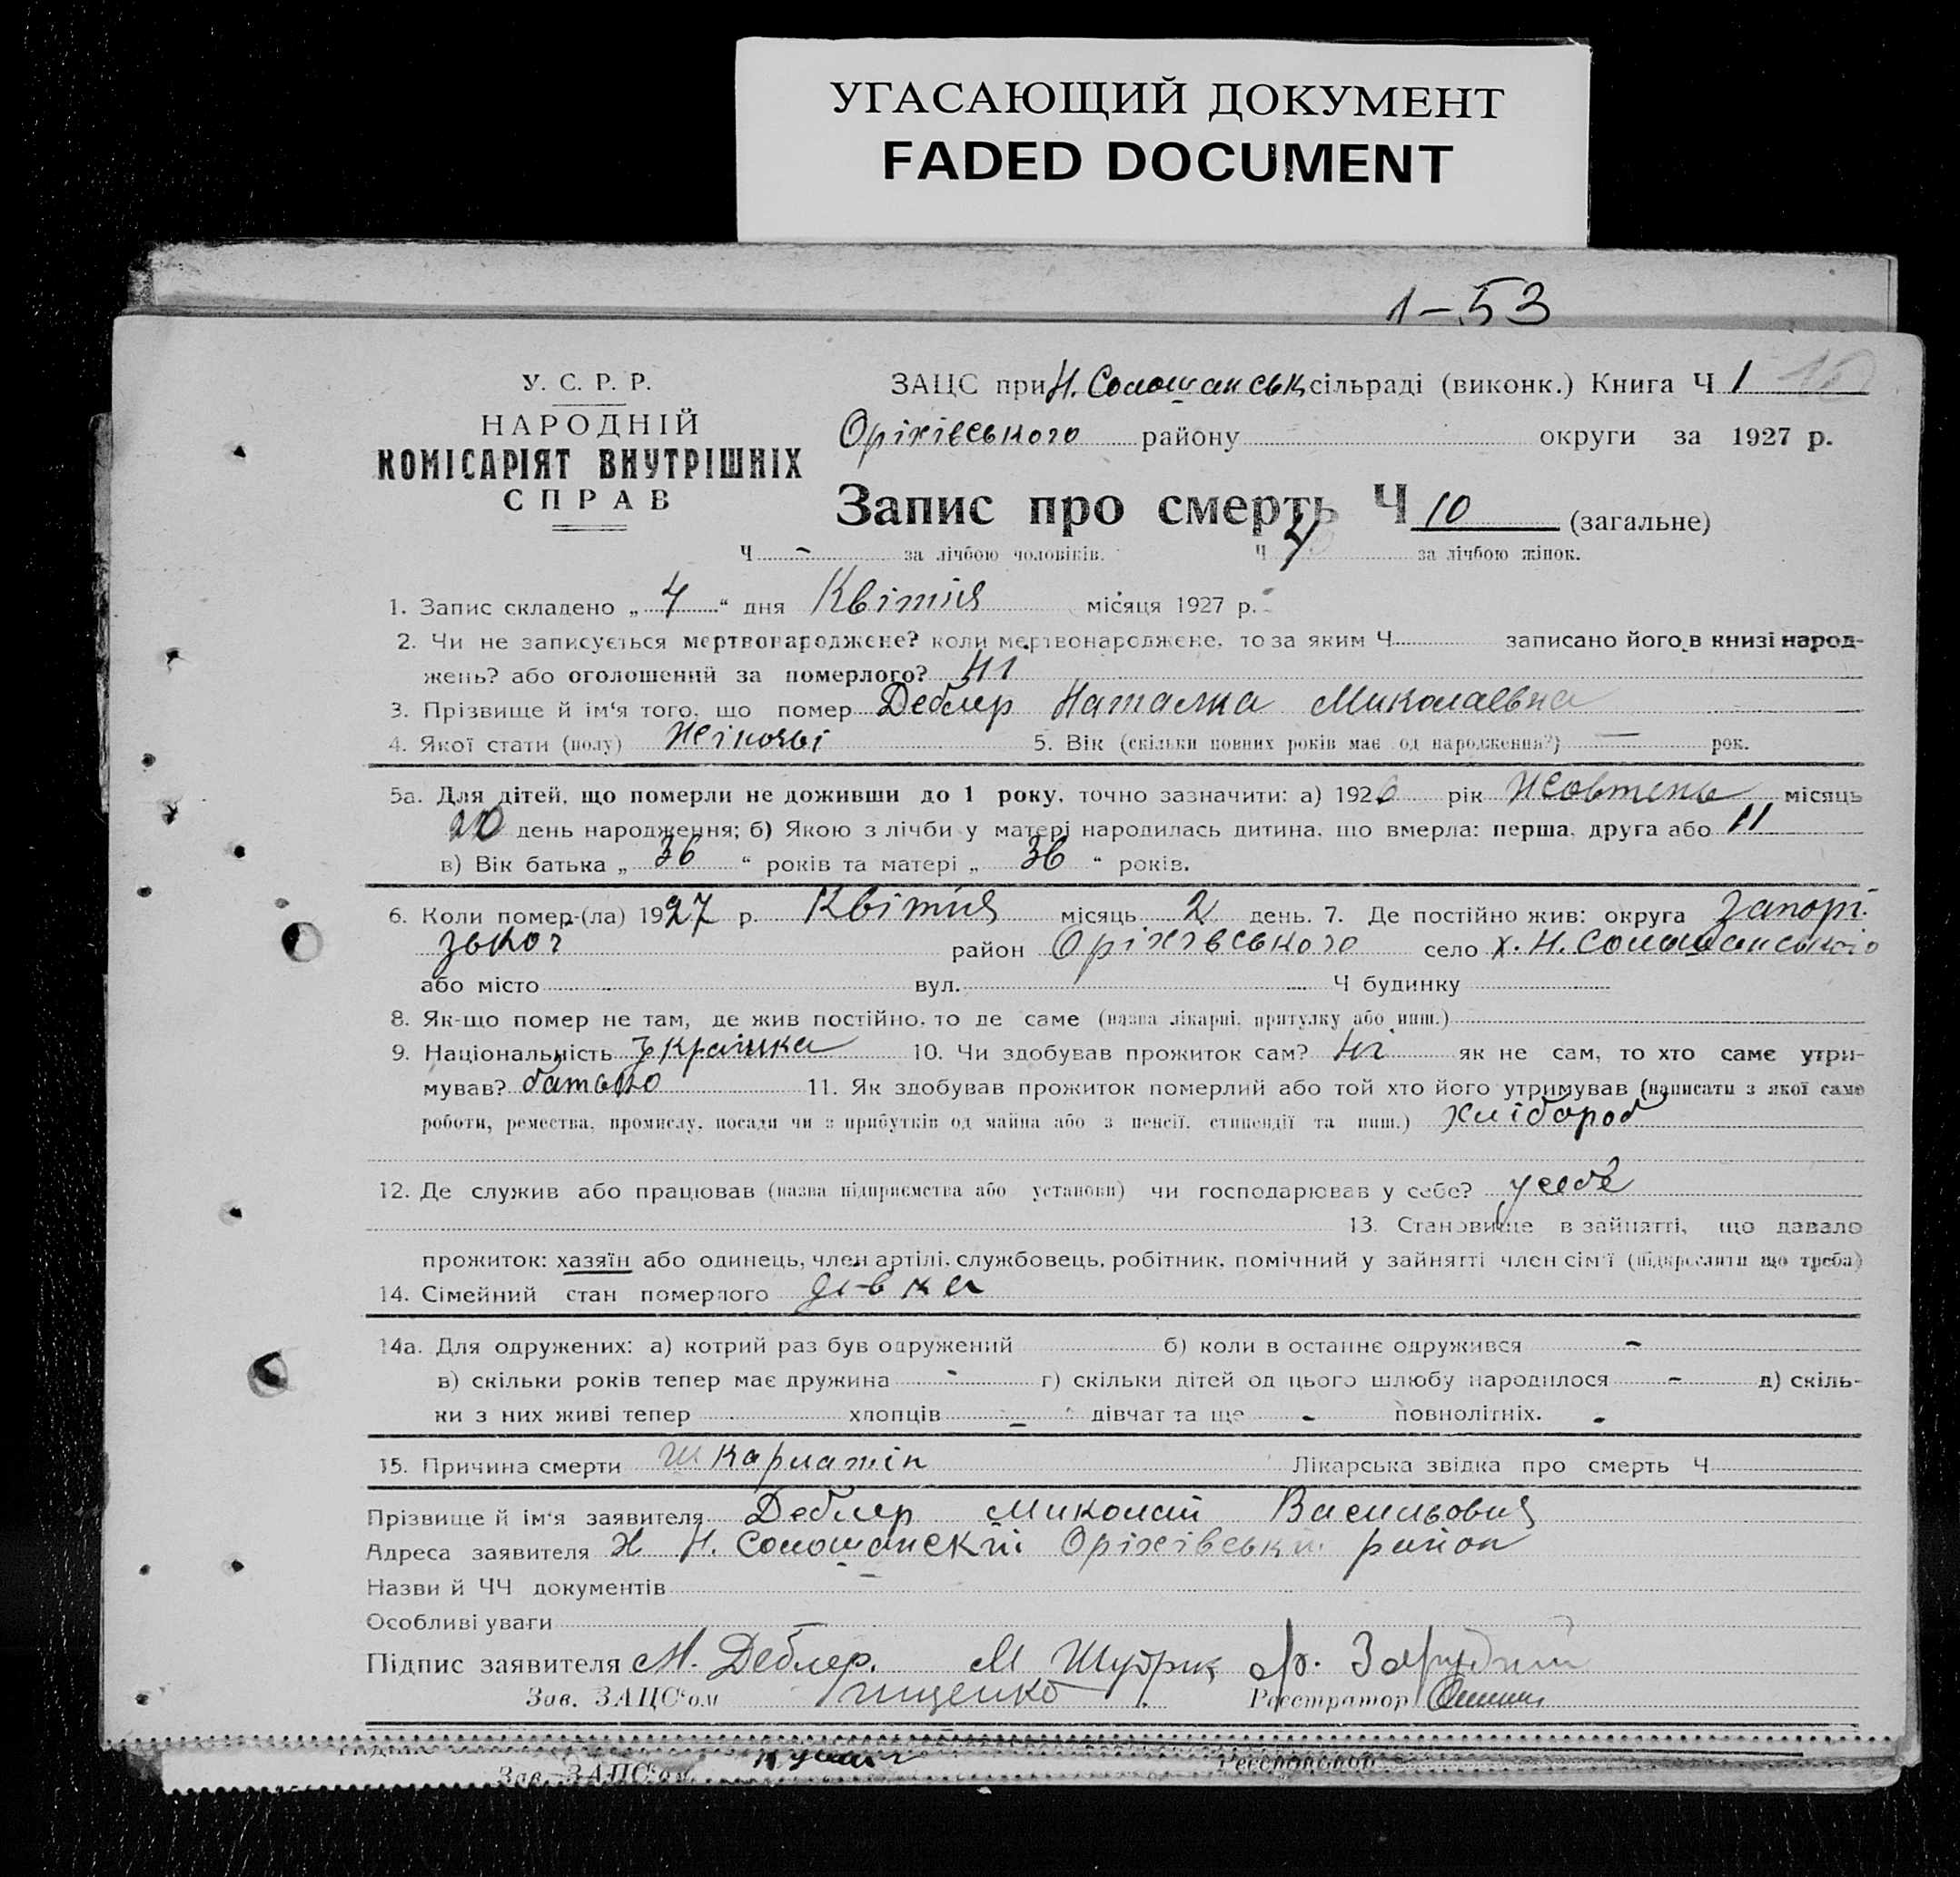 УГАСАЮЩИЙ ДОКУМЕНТ
FADED DOCUMENT
1-53
У. С. Р. Р.
НАРОДНІЙ
КОМІСАРІЯТ ВНУТРІШНІХ
СПРАВ
ЗАЦС при Н. Солошанськ сільраді (виконк.) Книга Ч 1 10
Оріхівського району округи за 1927 р.
Запис про смерть Ч 10 (загальне)
Ч - за лічбою чоловіків. Ч 4 за лічбою жінок.
1. Запис складено „ 4 “ дня Квітня місяця 1927 р.
2. Чи не записується мертвонароджене? коли мертвонароджене, то за яким Ч записано його в книзі народ-
жень? або оголошений за померлого? Ні
3. Прізвище й ім‘я того, що помер Деблер Наталка Миколаевна
4. Якої стати (полу) Жіночві 5. Вік (скільки повних років має од народження?) — рок.
5а. Для дітей, що померли не доживши до 1 року, точно зазначити: а) 1926 рік Жовтень місяць
20 день народження; б) Якою з лічби у матері народилась дитина, що вмерла: перша, друга або 11
в) Вік батька „ 36 “ років та матері „ 36 “ років.
6. Коли помер-(ла) 1927 р. Квітня місяць 2 день. 7. Де постійно жив: округа Запорі-
зької район Оріхівського село х. Н. Солошанського
або місто вул. Ч будинку
8. Як-що помер не там, де жив постійно, то де саме (назва лікарні, притулку або инш.)
9. Національність Украінка 10. Чи здобував прожиток сам? Ні як не сам, то хто саме утри-
мував? батько 11. Як здобував прожиток померлий або той хто його утримував (написати з якої саме
роботи, ремества, промислу, посади чи з прибутків од майна або з пенсії, стипендії та инш.) хлібороб
12. Де служив або працював (назва підприємства або установи) чи господарював у себе? у себе
13. Становище в зайнятті, що давало
прожиток: хазяїн або одинець, член артілі, службовець, робітник, помічний у зайнятті член сім‘ї (підкреслити що треба)
14. Сімейний стан померлого дівка
14а. Для одружених: а) котрий раз був одружений б) коли в останнє одружився -
в) скільки років тепер має дружина - г) скільки дітей од цього шлюбу народилося - д) скіль-
ки з них живі тепер хлопців - дівчат та ще - повнолітніх.
15. Причина смерти шкарлатін Лікарська звідка про смерть Ч
Прізвище й ім‘я заявителя Деблер Миколай Васильович
Адреса заявителя Х Н. Солошанскй Оріхівськй район
Назви й ЧЧ документів
Особливі уваги
Підпис заявителя М. Деблер. М Шудрик Зарудний
Зав. ЗАЦС‘ом Грищенко Реєстратор
Зав. ЗАЦС‘ом Реєстратор